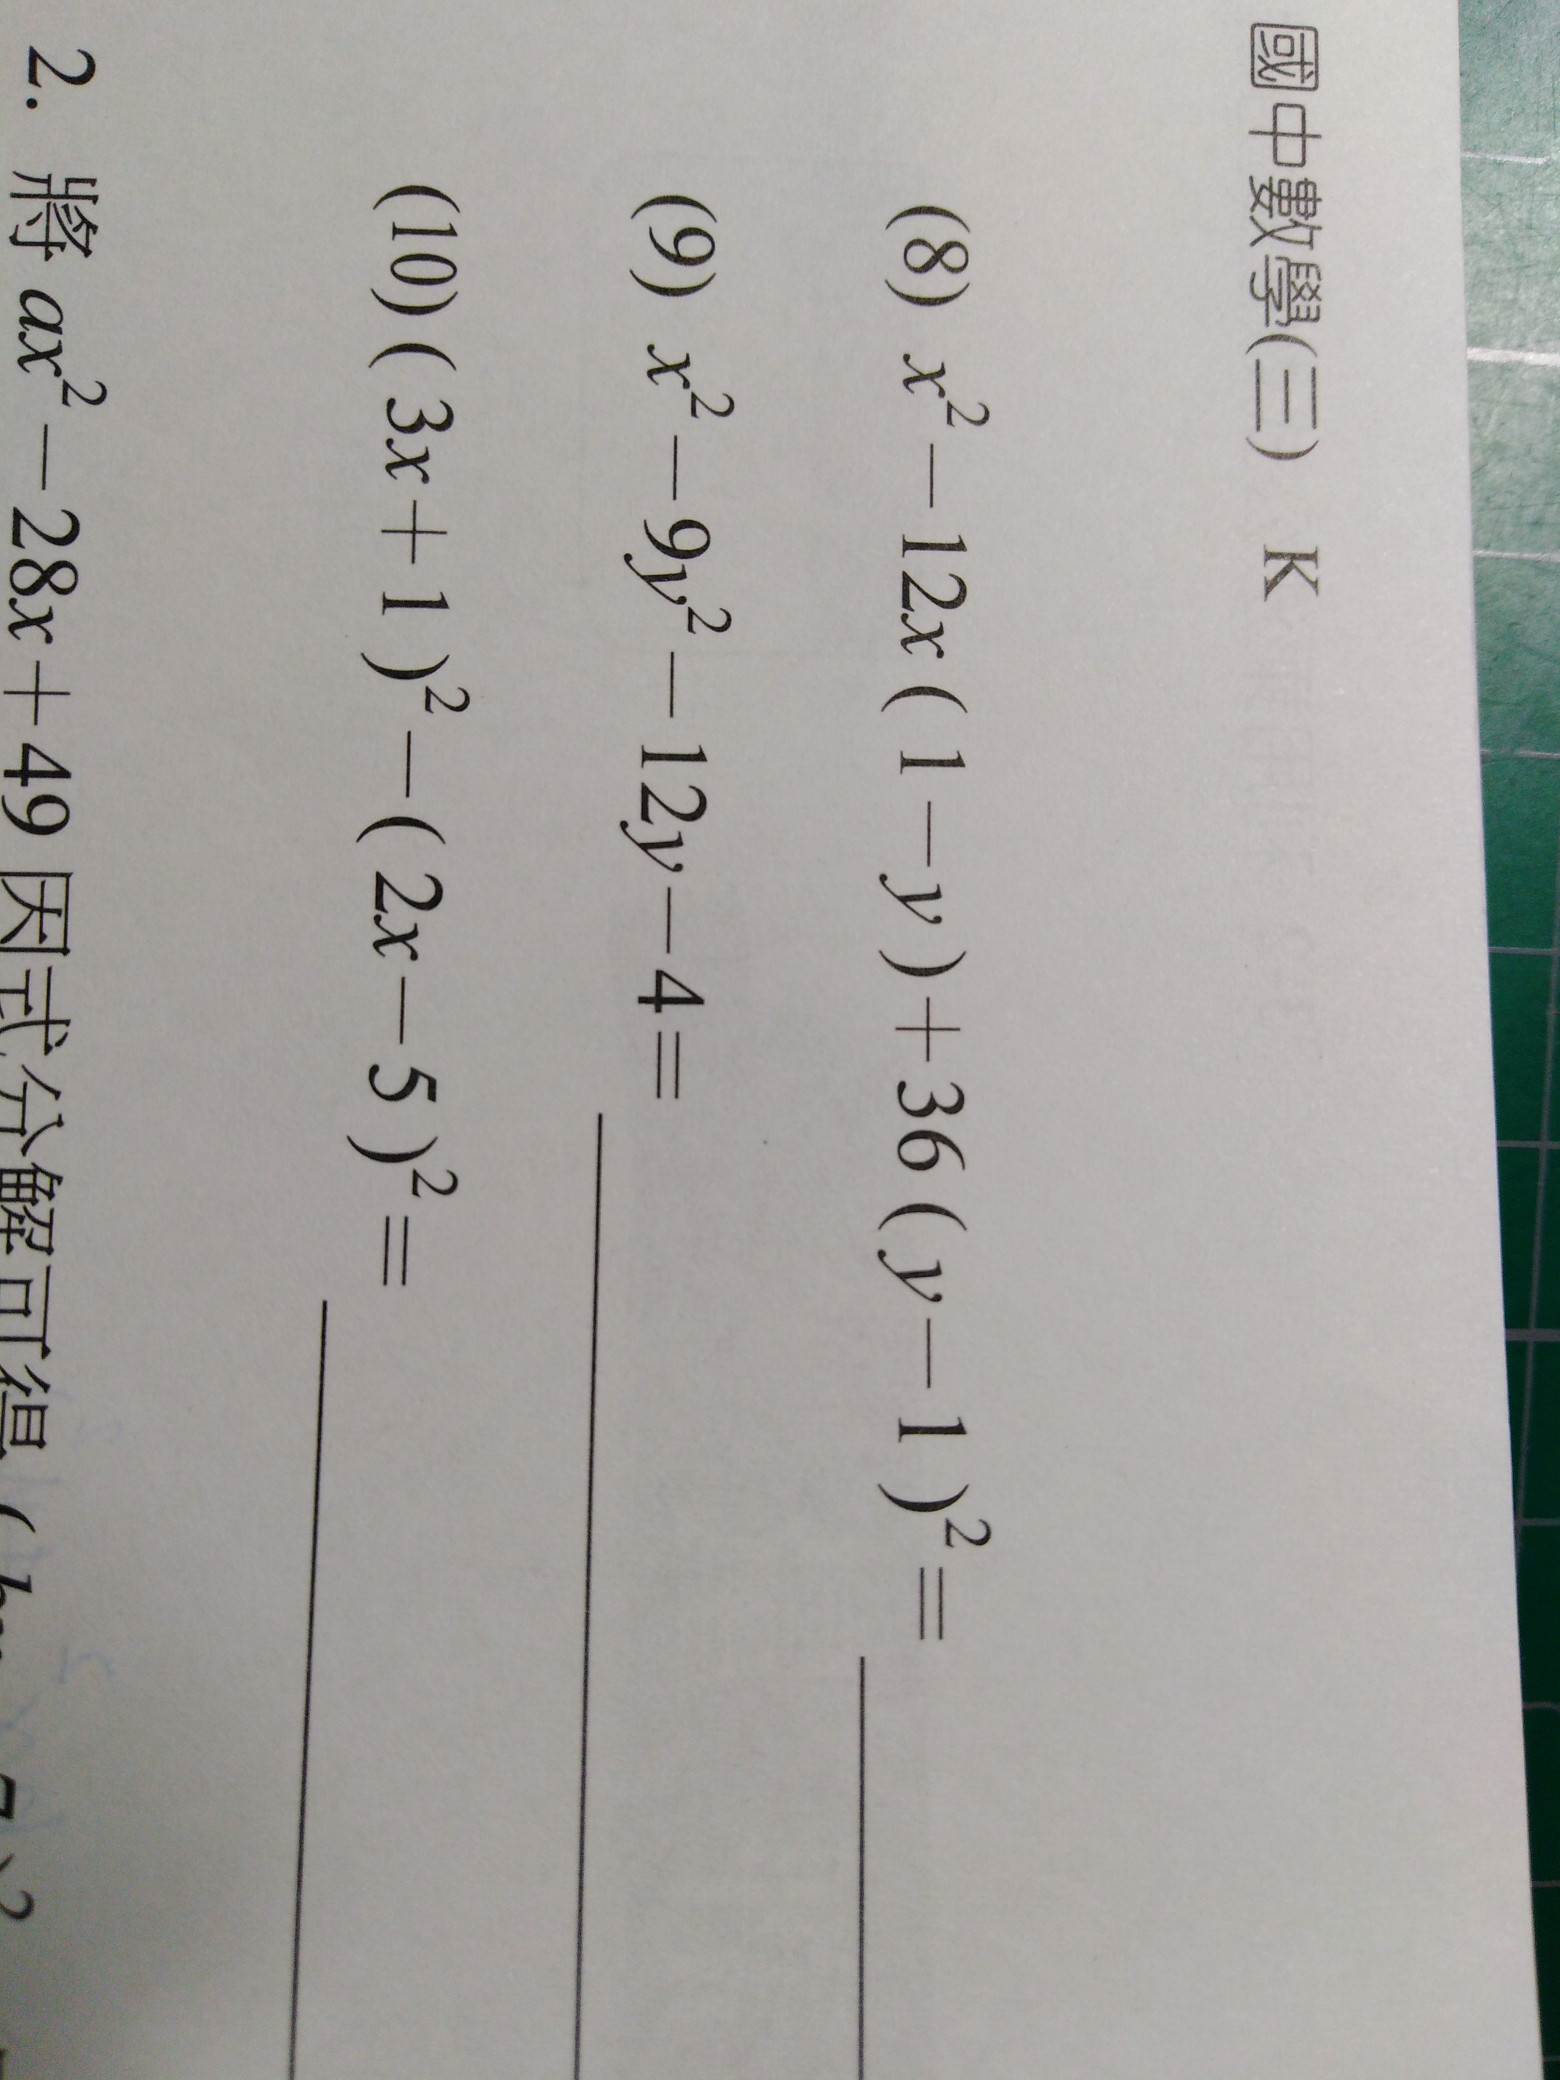 國中數學(三) K
(8) x²－12x( 1－y )＋36( y－1 )²＝
(9) x²－9y²－12y－4＝
(10) ( 3x＋1 )²－( 2x－5 )²＝
2. 將 ax²－28x＋49 因式分解可得 ( bx